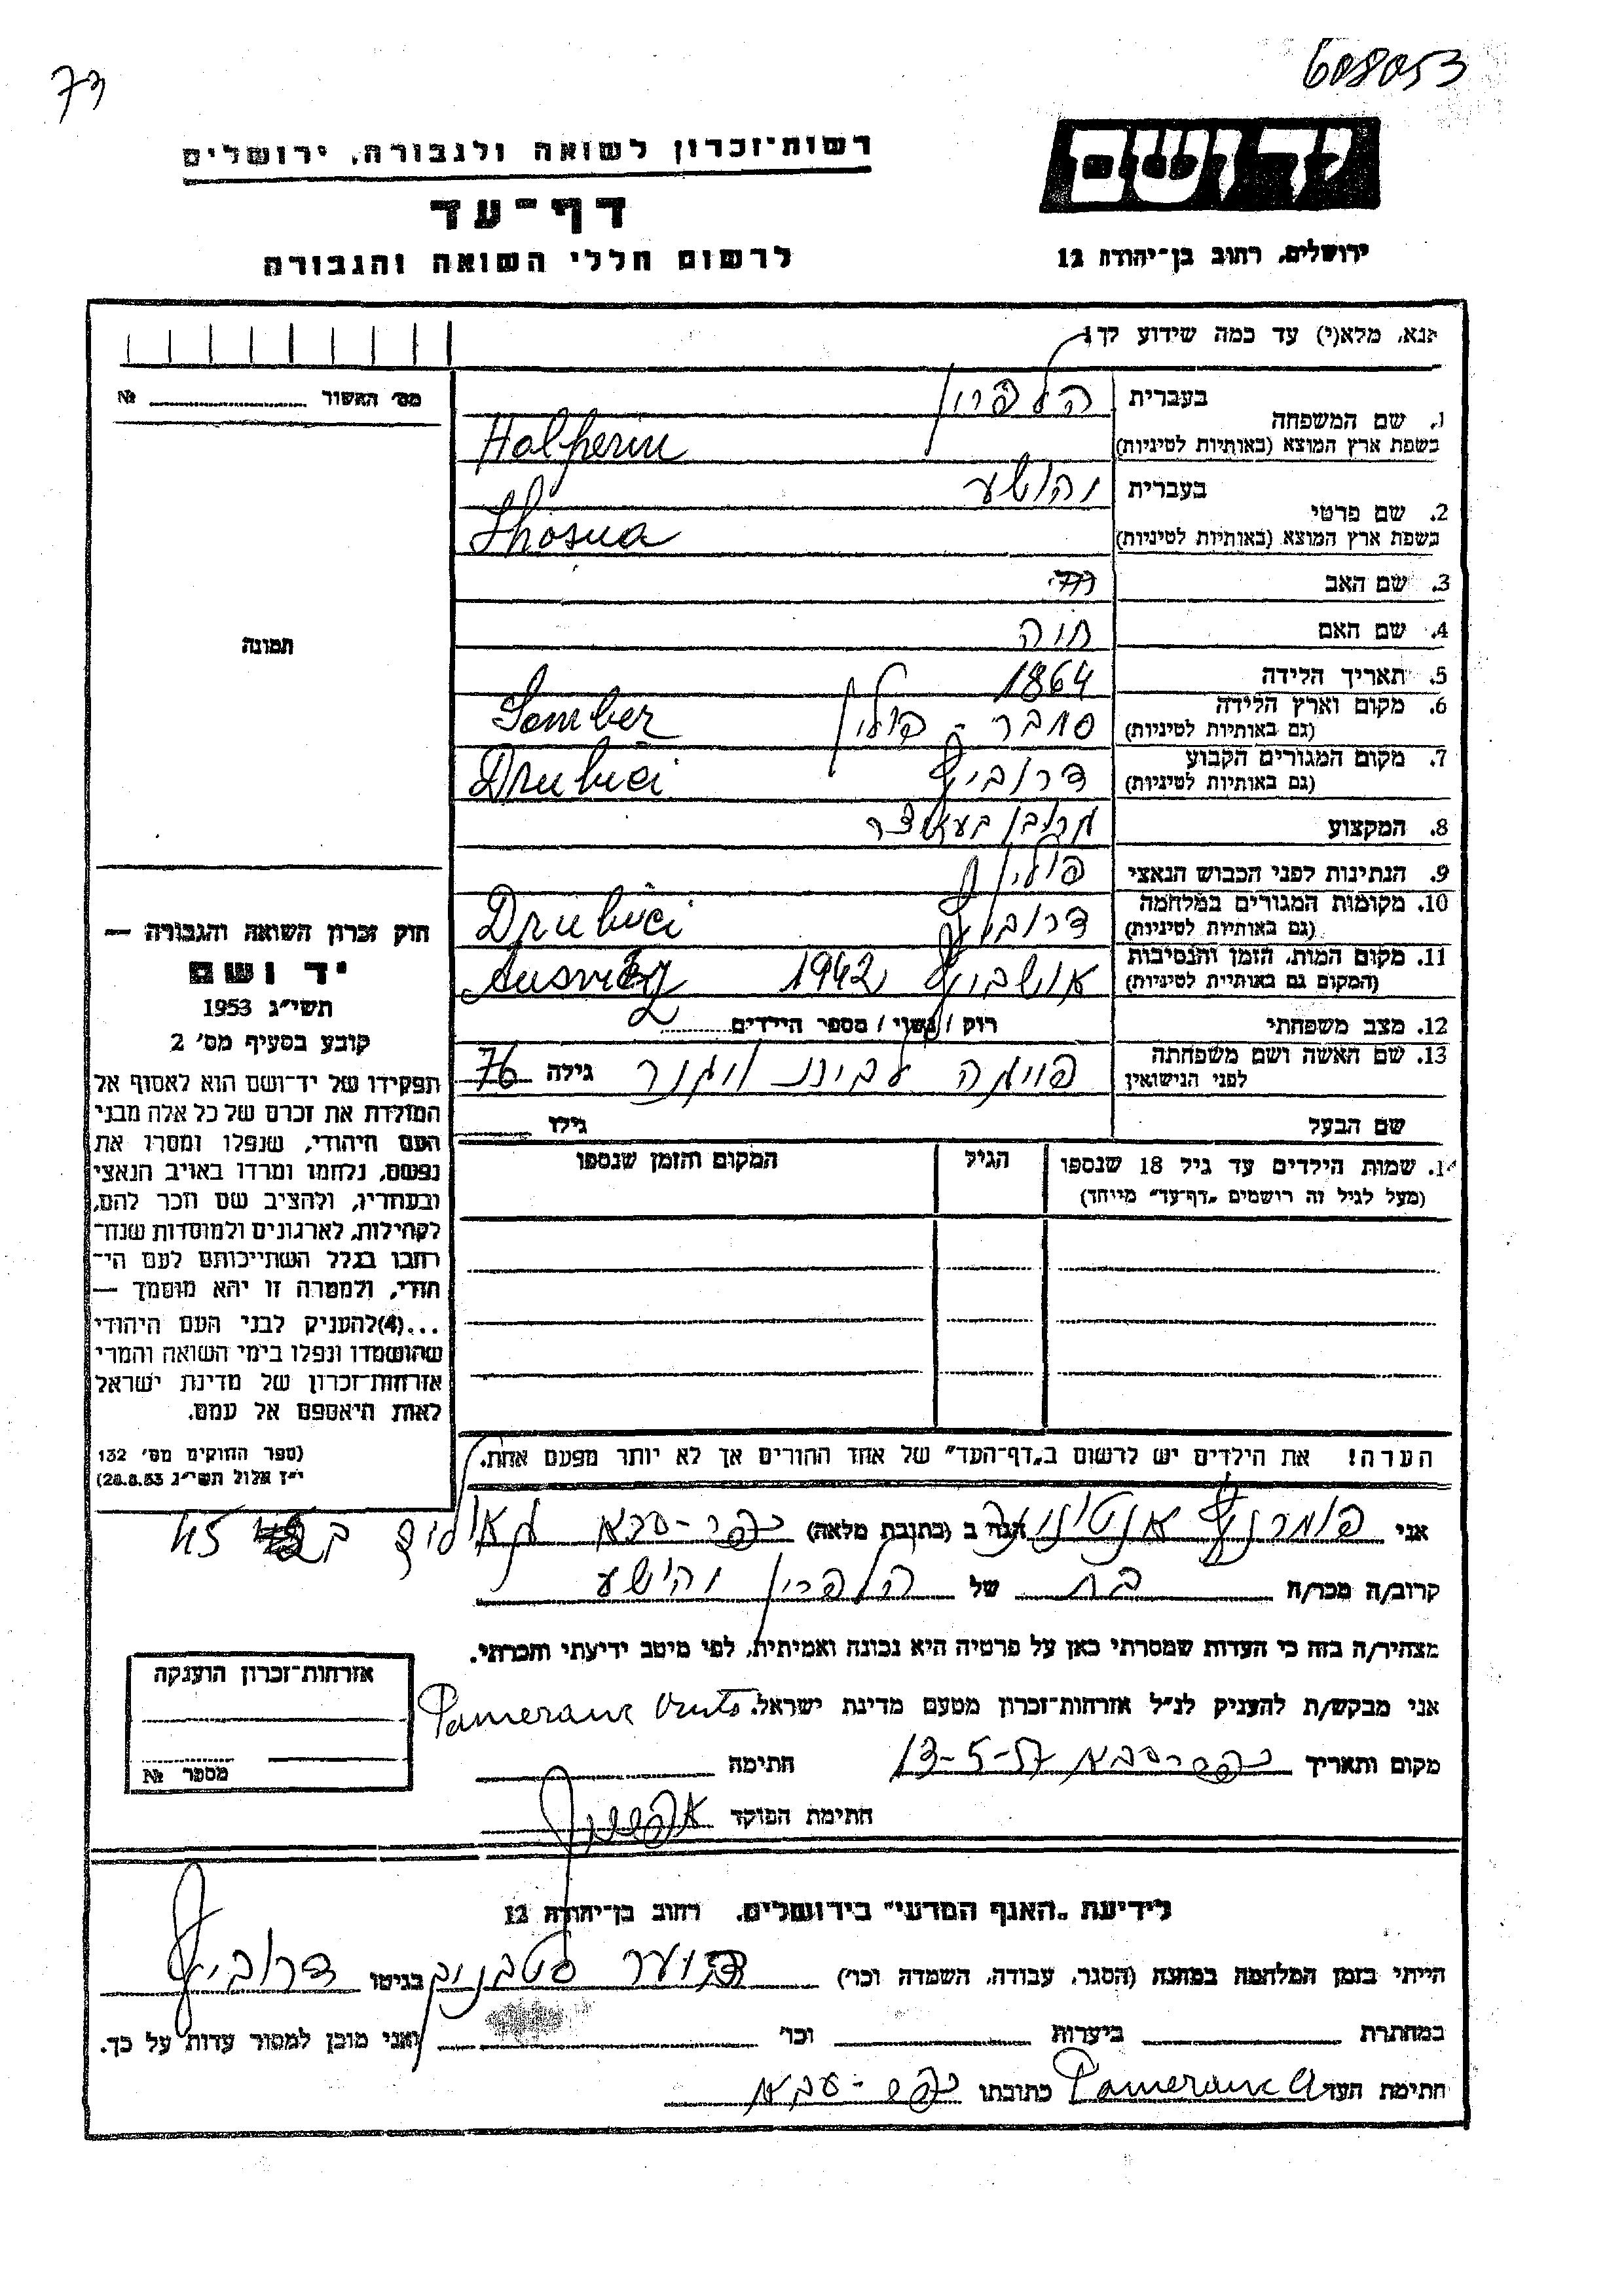 608053
יד ושם
ירושלים, רחוב בן־יהודה 12
רשות־זכרון לשואה ולגבורה, ירושלים
דף־עד
לרשום חללי השואה והגבורה
אנא, מלא(י) עד כמה שידוע לך!
מס' האשור № 
תמונה
1. שם המשפחה בעברית הלפרין
בשפת ארץ המוצא (באותיות לטיניות) Halperin
2. שם פרטי בעברית יהושע
בשפת ארץ המוצא (באותיות לטיניות) Ihosua
3. שם האב
4. שם האם חוה
5. תאריך הלידה 1864
6. מקום וארץ הלידה
(גם באותיות לטיניות) סמבר - פולין Sember
7. מקום המגורים הקבוע
(גם באותיות לטיניות) דרוביץ Drubici
8. המקצוע
9. הנתינות לפני הכבוש הנאצי פולין
10. מקומות המגורים במלחמה
(גם באותיות לטיניות) דרוביץ Drubici
11. מקום המות, הזמן והנסיבות
(המקום גם באותיות לטיניות) אושביץ 1942
12. מצב משפחתי רוק / נשוי / מספר הילדים
13. שם האשה ושם משפחתה
לפני הנישואין גילה 76
שם הבעל גילו
14. שמות הילדים עד גיל 18 שנספו הגיל המקום והזמן שנספו
(מעל לגיל זה רושמים "דף־עד" מיוחד)
הערה! את הילדים יש לרשום ב"דף־העד" של אחד ההורים אך לא יותר מפעם אחת.
חוק זכרון השואה והגבורה —
יד ושם
תשי"ג 1953
קובע בסעיף מס' 2
תפקידו של יד־ושם הוא לאסוף אל
המולדת את זכרם של כל אלה מבני
העם היהודי, שנפלו ומסרו את
נפשם, נלחמו ומרדו באויב הנאצי
ובעוזריו, ולהציב שם וזכר להם,
לקהילות, לארגונים ולמוסדות שנח־
רבו בגלל השתייכותם לעם הי־
הודי, ולמטרה זו יהא מוסמך —
...(4)להעניק לבני העם היהודי
שהושמדו ונפלו בימי השואה והמרי
אזרחות־זכרון של מדינת ישראל
לאות היאספם אל עמם.
(ספר החוקים מס' 132
י"ז אלול תשי"ג 28.8.53)
אני פומרנץ אנטונינה הגה ב (כתובת מלאה) כפר-סבא
קרוב/ה מכר/ה בת של הלפרין יהושע
מצהיר/ה בזה כי העדות שמסרתי כאן על פרטיה היא נכונה ואמיתית, לפי מיטב ידיעתי והכרתי.
אני מבקש/ת להעניק לנ"ל אזרחות־זכרון מטעם מדינת ישראל.
מקום ותאריך כפר-סבא 13-5-57 חתימה
חתימת הפוקד
אזרחות־זכרון הוענקה
מספר №
לידיעת "האגף המדעי" בירושלים, רחוב בן־יהודה 12
הייתי בזמן המלחמה במחנה (הסגר, עבודה, השמדה וכו') בגיטו דרוביץ
במחתרת ביערות וכו' ואני מוכן למסור עדות על כך.
חתימת העד Pameranc A כתובתו כפר-סבא